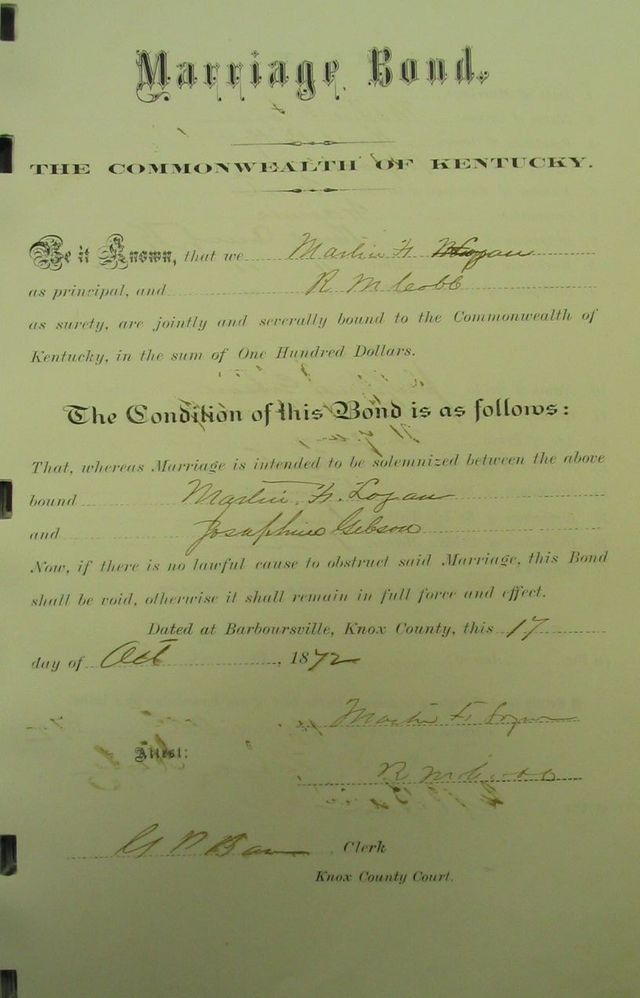 Marriage Bond.
THE COMMONWEALTH OF KENTUCKY.
Be it Known, that we Martin F. Logan
as principal, and R M Cobb
as surety, are jointly and severally bound to the Commonwealth of
Kentucky, in the sum of One Hundred Dollars.
The Condition of this Bond is as follows:
That, whereas Marriage is intended to be solemnized between the above
bound Martin F. Logan
and Josaphine Gibson
Now, if there is no lawful cause to obstruct said Marriage, this Bond
shall be void, otherwise it shall remain in full force and effect.
Dated at Barboursville, Knox County, this 17
day of Oct, 1872
Martin F. Logan
Attest:
R M Cobb
Clerk
Knox County Court.